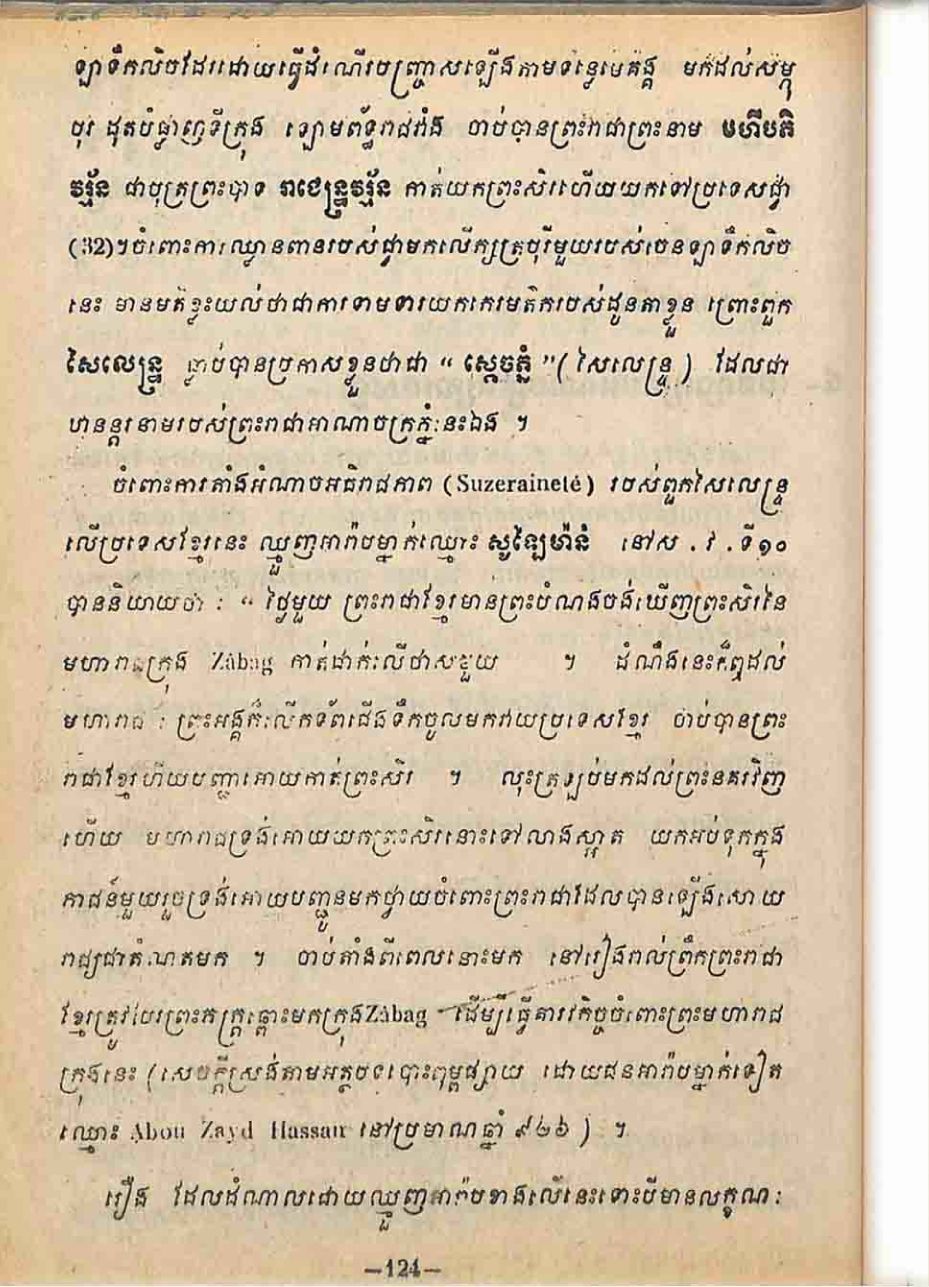 ឡាទឹកលិចដែរដោយធ្វើដំណើរបញ្ច្រាសឡើងតាមទន្លេមេគង្គ មកដល់សម្ភុ
បុរ ដុតបំផ្លាញទីក្រុង ឡោមព័ទ្ធរាជវាំង ចាប់បានព្រះរាជាព្រះនាម មហីបតិ
វរ្ម័ន ជាបុត្រព្រះបាទ រាជេន្ទ្រវរ្ម័ន កាត់យកព្រះសិរហើយយកទៅប្រទេសជ្វា
(32)។ចំពោះការឈ្លានពានរបស់ជ្វាមកលើក្សត្របុរីមួយរបស់ចេនឡាទឹកលិច
នេះ មានមតិខ្លះយល់ថាជាការទាមទារយកកេរមតិករបស់ដូនតាខ្លួន ព្រោះពួក
សៃលេន្ទ្រ ធ្លាប់បានប្រកាសខ្លួនថាជា “ ស្តេចភ្នំ ”( សៃលេន្ទ្រ ) ដែលជា
ឋានន្តរនាមរបស់ព្រះរាជាអាណាចក្រភ្នំនេះឯង ។
ចំពោះការតាំងអំណាចអធិរាជភាព (Suzeraineté) របស់ពួកសៃលេន្ទ្រ
លើប្រទេសខ្មែរនេះ ឈ្មួញអារ៉ាប់ម្នាក់ឈ្មោះ សូឡៃម៉ាន់ នៅស . វ . ទី១០
បាននិយាយថា : “ ថ្ងៃមួយ ព្រះរាជាខ្មែរមានព្រះបំណងចង់ឃើញព្រះសិរនៃ
មហារាជក្រុង Zâbag កាត់ដាក់លើថាសមួយ ។ ដំណឹងនេះក៏ឮដល់
មហារាជ : ព្រះអង្គក៏លើកទ័ពជើងទឹកចូលមកវាយប្រទេសខ្មែរ ចាប់បានព្រះ
រាជាខ្មែរហើយបញ្ជាអោយកាត់ព្រះសិរ ។ លុះត្រឡប់មកដល់ព្រះនគរវិញ
ហើយ មហារាជទ្រង់អោយយកព្រះសិរនោះទៅលាងស្អាត យកអប់ទុកក្នុង
ភាជន៍មួយរួចទ្រង់អោយបញ្ជូនមកថ្វាយចំពោះព្រះរាជាដែលបានឡើងសោយ
រាជ្យជាតំណតមក ។ ចាប់តាំងពីពេលនោះមក នៅរៀងរាល់ព្រឹកព្រះរាជា
ខ្មែរត្រូវបែរព្រះភក្ត្រឆ្ពោះមកក្រុងZâbag ដើម្បីធ្វើគារវកិច្ចចំពោះព្រះមហារាជ
ក្រុងនេះ (សេចក្តីស្រង់តាមអត្ថបទបោះពុម្ពផ្សាយ ដោយជនអារ៉ាប់ម្នាក់ទៀត
ឈ្មោះ Abou Zayd Hassan នៅប្រមាណឆ្នាំ ៩១៦ ) ។
រឿង ដែលដំណាលដោយឈ្មួញអារ៉ាប់ខាងលើនេះទោះបីមានលក្ខណៈ
—124—